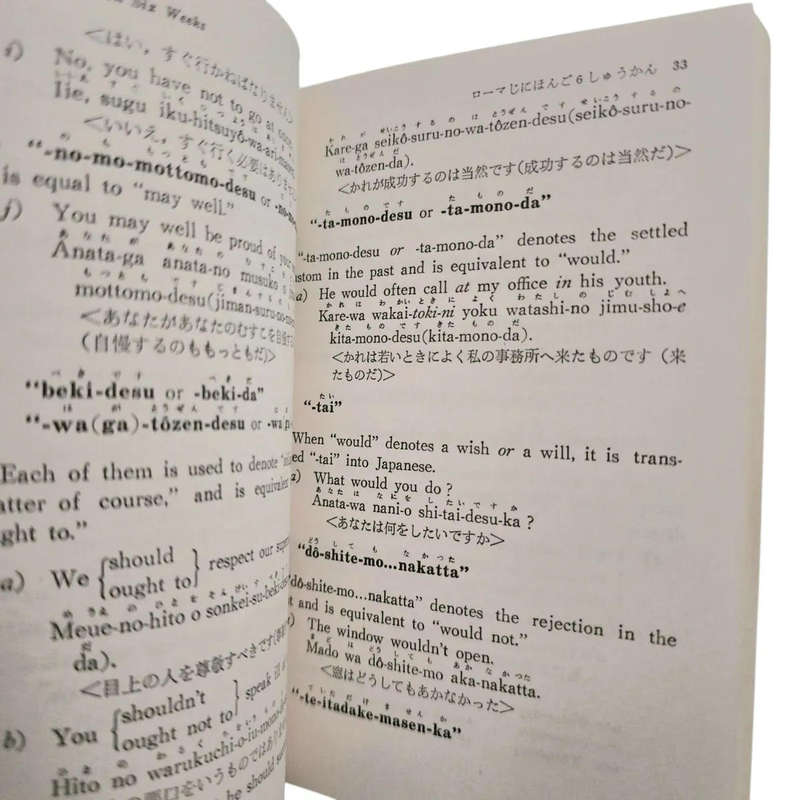 Six Weeks
<はい，すぐ行かねばなりません>
i) No, you have not to go at once.
Iie, sugu iku-hitsuyô-wa-ari-
<いいえ，すぐ行く必要はありません
"-no-mo-mottomo-desu or
is equal to "may well."
j) You may well be proud of your
Anata-ga anata-no musuko
mottomo-desu(jiman-suru-no-
<あなたがあなたのむすこを自慢する
(自慢するのももっともだ)>
"beki-desu or -beki-da"
"-wa(ga)-tôzen-desu or -wa
Each of them is used to denote
atter of course," and is equivalent
ght to."
a) We {should
ought to} respect our
Meue-no-hito o sonkei-su-beki-
da).
<目上の人を尊敬すべきです
b) You {shouldn't
ought not to} speak ill
Hito no warukuchi-o-iu-mono-
の悪口をいうものではあり
he should
ローマじにほんご6しゅうかん 33
かれ が せいこう する の は とうぜん です せいこう する の
Kare-ga seikô-suru-no-wa-tôzen-desu(seikô-suru-no-
は とうぜん だ
wa-tôzen-da).
<かれが成功するのは当然です(成功するのは当然だ)>
た もの です た もの だ
"-ta-mono-desu or -ta-mono-da"
"-ta-mono-desu or -ta-mono-da" denotes the settled
ustom in the past and is equivalent to "would."
a) He would often call at my office in his youth.
かれ は わかい とき に よく わたし の じむ しょ へ
Kare-wa wakai-toki-ni yoku watashi-no jimu-sho-e
きた もの です きた もの だ
kita-mono-desu(kita-mono-da).
<かれは若いときによく私の事務所へ来たものです (来
たものだ)>
たい
"-tai"
When "would" denotes a wish or a will, it is trans-
ed "-tai" into Japanese.
a) What would you do ?
あなた は なに を し たい です か
Anata-wa nani-o shi-tai-desu-ka ?
<あなたは何をしたいですか>
どう し て も なかった
"dô-shite-mo...nakatta"
"dô-shite-mo...nakatta" denotes the rejection in the
t and is equivalent to "would not."
) The window wouldn't open.
まど は どう し て も あか なかった
Mado wa dô-shite-mo aka-nakatta.
<窓はどうしてもあかなかった>
て いただけ ま せん か
"-te-itadake-masen-ka"